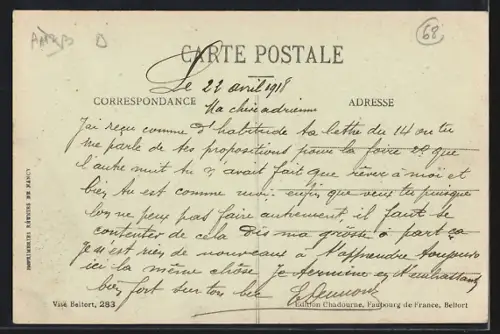 68
CARTE POSTALE
Le 22 avril 1918
CORRESPONDANCE
ADRESSE
Ma chère adrienne
J'ai reçu comme d'habitude ta lettre du 14 ou tu
me parle de tes propositions pour la foire que
l'autre nuit tu avait fait que rêver à moi et
bien tu est comme moi enfin que veux tu puisque
lon ne peux pas faire autrement, il faut se
contenter de cela dis ma grosse à part ça
Je n'est rien de nouveaux à t'apprendre toujours
ici la même chose Je termine en t'embrassant
bien fort sur ton bec
IMPRIMERIES RÉUNIES DE NANCY
Visé Belfort, 283
Edition Chadourne, Faubourg de France, Belfort